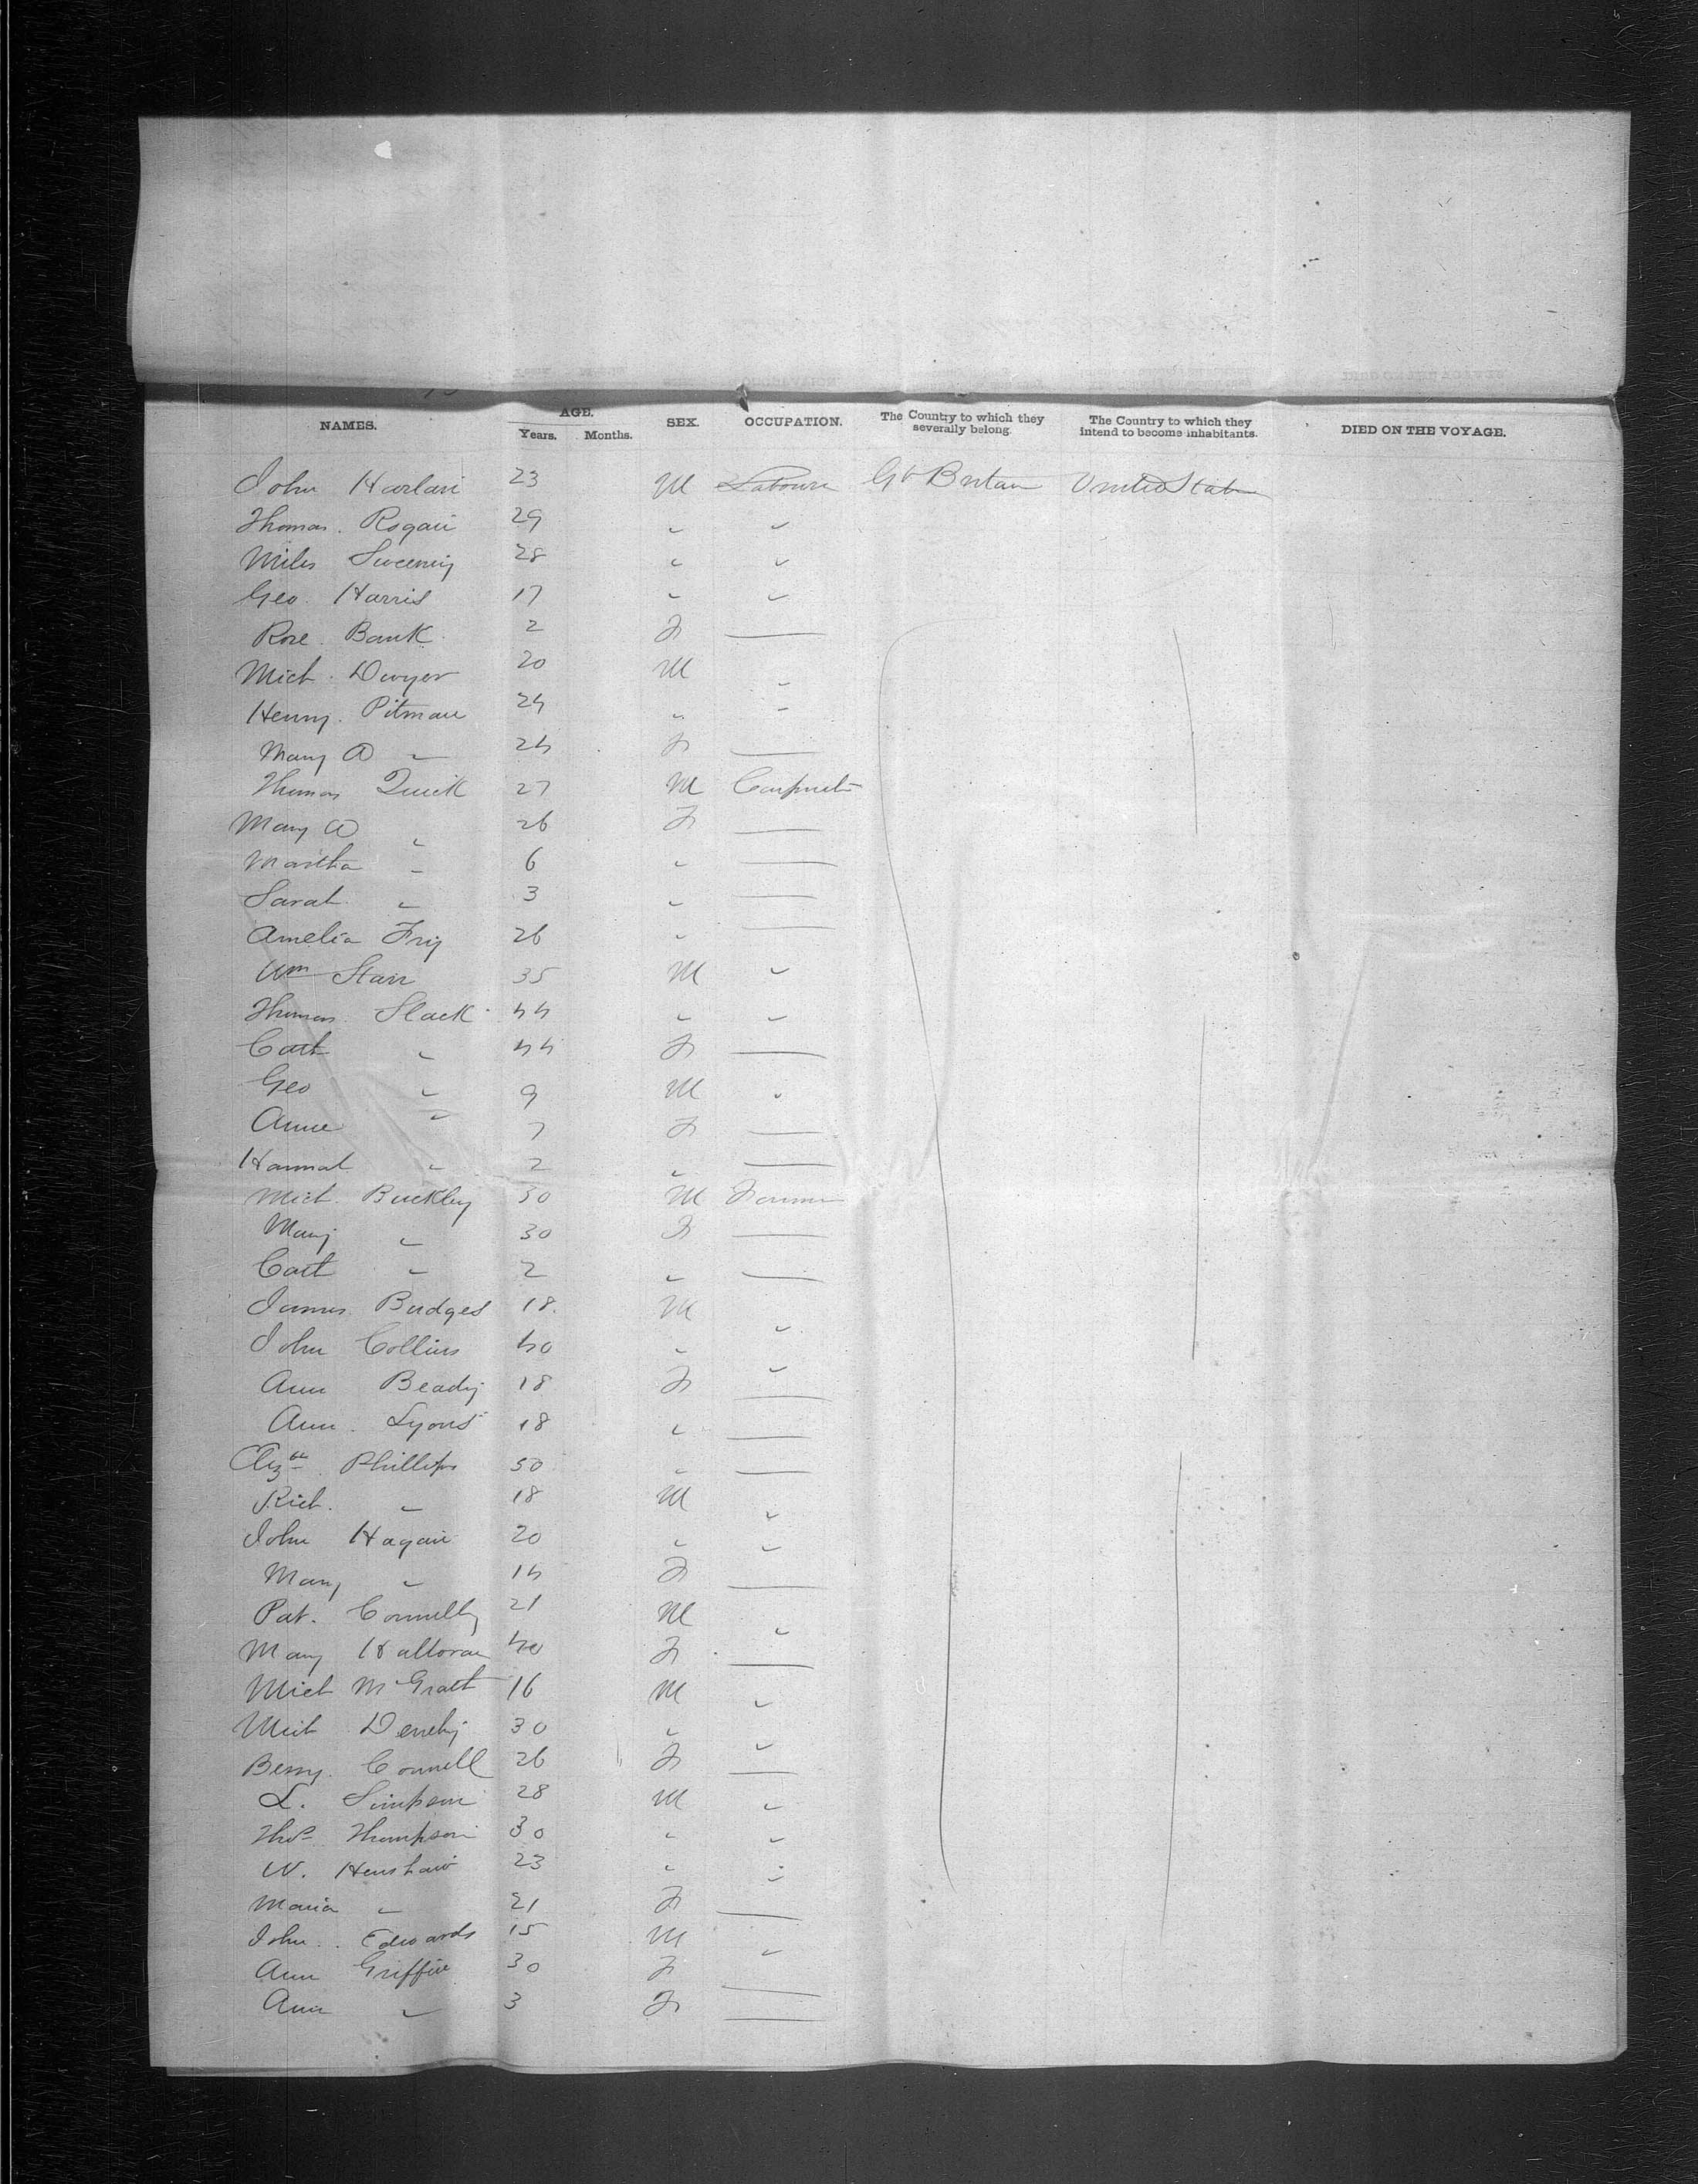 NAMES. AGE. Years. Months. SEX. OCCUPATION. The Country to which they severally belong. The Country to which they intend to become inhabitants. DIED ON THE VOYAGE.
John Harlan 23 M Labourer Gt Britain United States
Thomas Rogan 29 " "
Miles Sweeney 28 " "
Geo. Harris 17 " "
Rose Bank 2 F —
Mich. Dwyer 20 M "
Henry Pitman 24 " "
Mary A " 24 F —
Thomas Quick 27 M Carpenter
Mary A " 26 F —
Martha " 6 " —
Sarah " 3 " —
Amelia Fry 26 " —
Wm Starr 35 M "
Thomas Slack 44 " "
Cath " 44 F —
Geo " 9 M "
Annie " 7 F —
Hannah " 2 " —
Mich. Buckley 30 M Farmer
Mary " 30 F —
Cath " 2 " —
James Budges 18 M "
John Collins 40 " "
Ann Beady 18 F —
Ann Lyons 18 " —
Elizth Phillips 50 " —
Rich. " 18 M "
John Hagan 20 " "
Mary " 14 F —
Pat. Connelly 21 M "
Mary Halloran 40 F —
Mich McGrath 16 M "
Mich Denehy 30 " "
Bessy Connell 26 F —
L. Simpson 28 M "
Thos Thompson 30 " "
W. Henshaw 23 " "
Maria " 21 F —
John Edwards 15 M "
Ann Griffin 30 F —
Ann " 3 F —